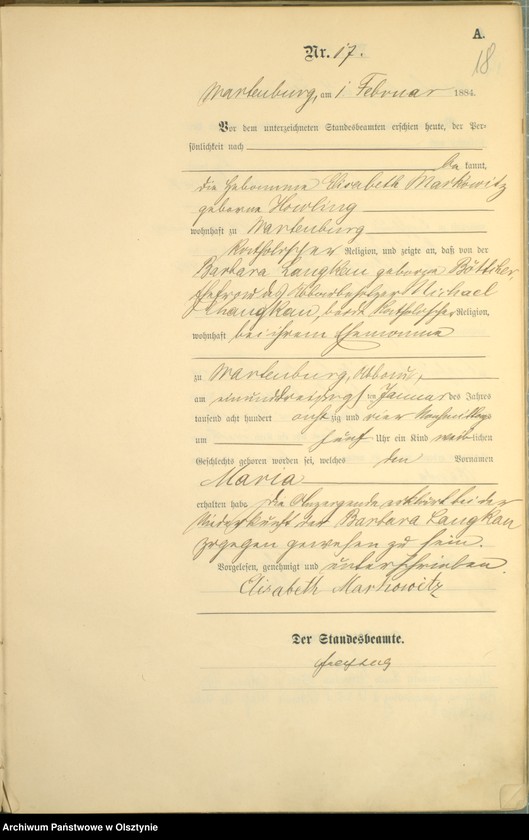 A.
18
Nr. 17.
Wartenburg, am 1 Februar 1884.
Vor dem unterzeichneten Standesbeamten erschien heute, der Per-
sönlichkeit nach
be kannt,
die Hebamme Elisabeth Markowitz
geborne
wohnhaft zu Wartenburg
katholischer Religion, und zeigte an, daß von der
Barbara Langkau geborne Böttcher,
Ehefrau des Abbaubesitzer Michael
Langkau, beide katholischer Religion,
wohnhaft bei ihrem Ehemanne
zu Wartenburg, Abbau,
am einunddreißigsten Januar des Jahres
tausend acht hundert acht zig und vier Nachmittags
um fünf Uhr ein Kind weib lichen
Geschlechts geboren worden sei, welches den Vornamen
Maria
erhalten habe. Die Anzeigende erklärt bei der
Niederkunft der Barbara Langkau
zugegen gewesen zu sein.
Vorgelesen, genehmigt und unterschrieben.
Elisabeth Markowitz
Der Standesbeamte.
Archiwum Państwowe w Olsztynie